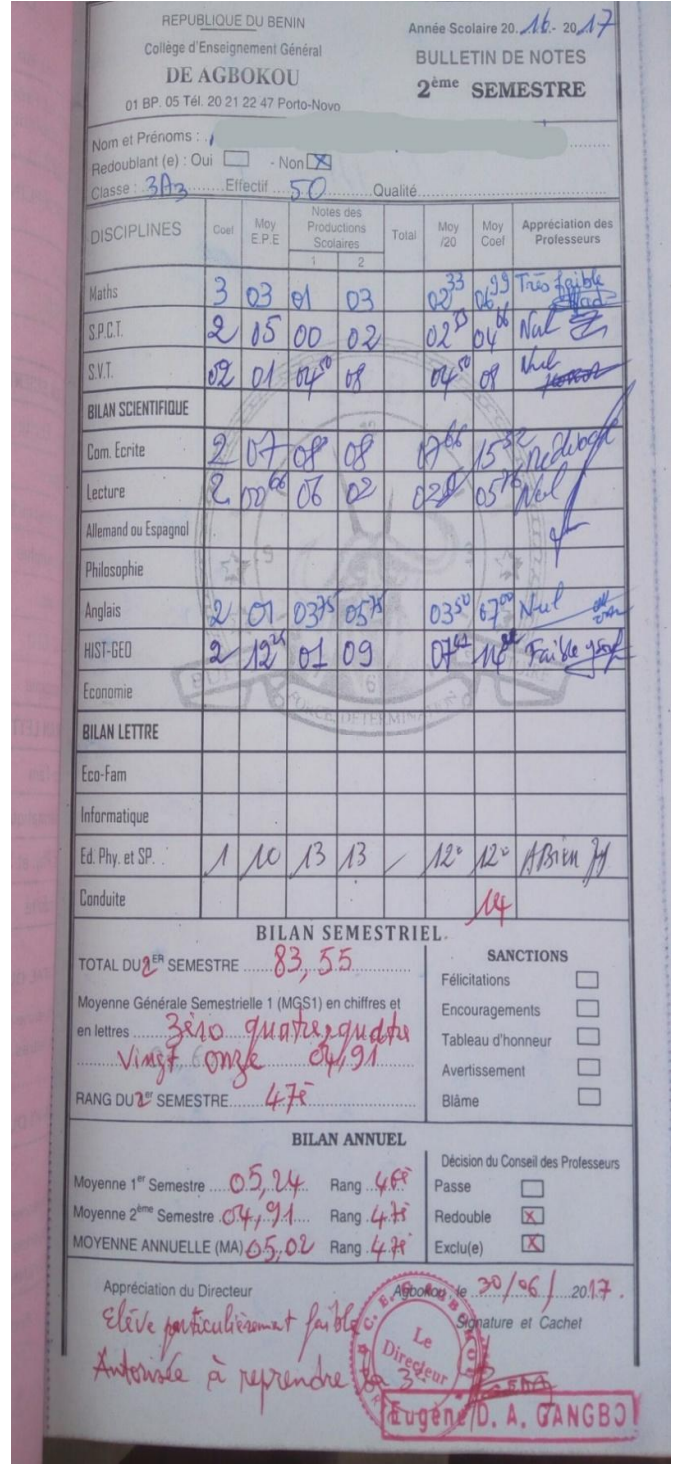 REPUBLIQUE DU BENIN
Collège d'Enseignement Général
DE AGBOKOU
01 BP. 05 Tél. 20 21 22 47 Porto-Novo
Année Scolaire 20 16 - 20 17
BULLETIN DE NOTES
2ème SEMESTRE
Nom et Prénoms :
Redoublant (e) : Oui - Non X
Classe : 3A3 Effectif 50 Qualité
DISCIPLINES Coef Moy E.P.E Notes des Productions Scolaires 1 2 Total Moy /20 Moy Coef Appréciation des Professeurs
Maths 3 03 01 03 02 33 06 99 Très faible
S.P.C.T. 2 05 00 02 02 33 04 66 Nul
S.V.T. 02 01 04 50 08 04 50 09 Nul
BILAN SCIENTIFIQUE
Com. Ecrite 2 07 08 08 07 66 15 32 médiocre
Lecture 2 00 66 06 02 02 05 76 Nul
Allemand ou Espagnol
Philosophie
Anglais 2 01 03 75 05 75 03 50 07 00 Nul
HIST-GEO 2 12 25 01 09 07 14 Faible
Economie
BILAN LETTRE
Eco-Fam
Informatique
Ed. Phy. et SP. 1 10 13 13 / 12 12 ABien
Conduite 14
BILAN SEMESTRIEL
TOTAL DU 2ER SEMESTRE 83,55
Moyenne Générale Semestrielle 1 (MGS1) en chiffres et
en lettres Zéro quatre, quatre
vingt onze 04,91
RANG DU 2er SEMESTRE 47è
SANCTIONS
Félicitations
Encouragements
Tableau d'honneur
Avertissement
Blâme
BILAN ANNUEL
Moyenne 1er Semestre 05,24 Rang 46è
Moyenne 2ème Semestre 04,91 Rang 47è
MOYENNE ANNUELLE (MA) 05,02 Rang 47è
Décision du Conseil des Professeurs
Passe
Redouble X
Exclu(e) X
Appréciation du Directeur
Elève particulièrement faible
Autorisée à reprendre la 3è
Agbokou, le 30/06/2017.
Signature et Cachet
C.E.G AGBOKOU
Le Directeur
Eugène D. A. GANGBO